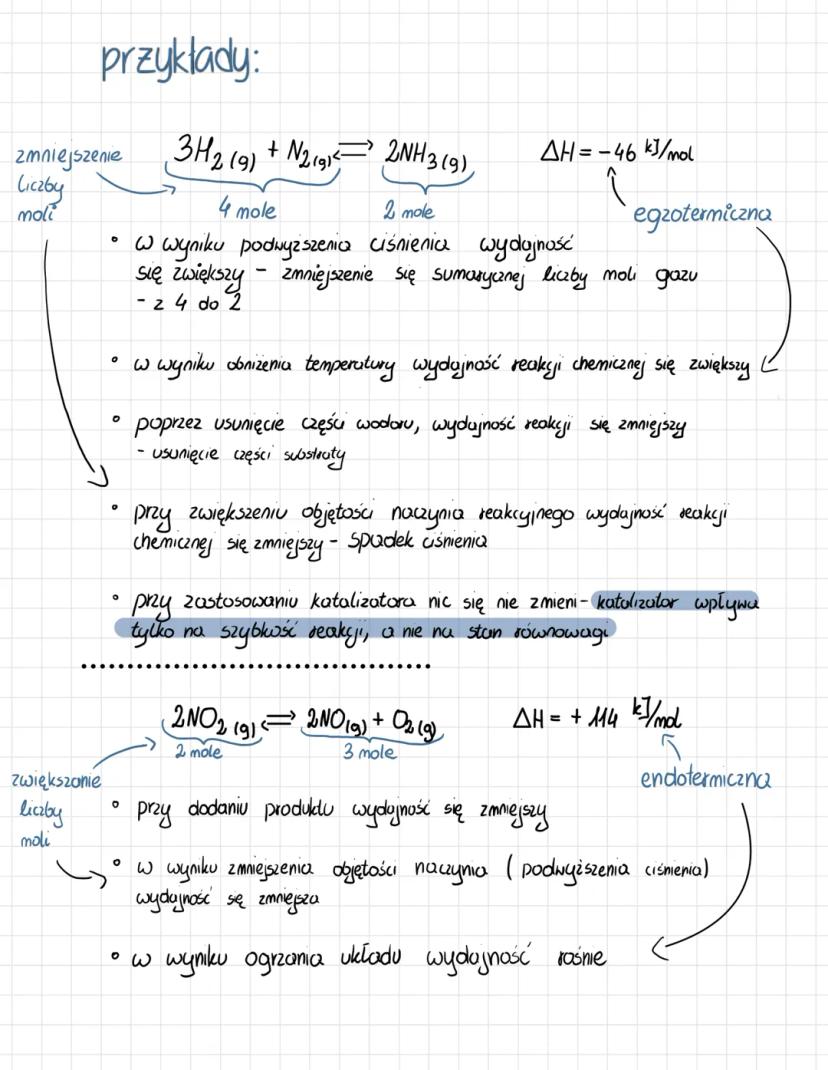 przykłady:
zmniejszenie
liczby
moli
3H2 (g) + N2 (g) ⇌ 2NH3 (g)
ΔH = -46 kJ/mol
4 mole
2 mole
egzotermiczna
• w wyniku podwyższenia ciśnienia wydajność
się zwiększy - zmniejszenie się sumarycznej liczby moli gazu
- z 4 do 2
• w wyniku obniżenia temperatury wydajność reakcji chemicznej się zwiększy
• poprzez usunięcie części wodoru, wydajność reakcji się zmniejszy
- usunięcie części substraty
• przy zwiększeniu objętości naczynia reakcyjnego wydajność reakcji
chemicznej się zmniejszy - spadek ciśnienia
• przy zastosowaniu katalizatora nic się nie zmieni - katalizator wpływa
tylko na szybkość reakcji, a nie na stan równowagi
2NO2 (g) ⇌ 2NO(g) + O2 (g)
ΔH = + 114 kJ/mol
2 mole
3 mole
zwiększanie
liczby
moli
endotermiczna
• przy dodaniu produktu wydajność się zmniejszy
• w wyniku zmniejszenia objętości naczynia ( podwyższenia ciśnienia)
wydajność się zmniejsza
• w wyniku ogrzania układu wydajność rośnie